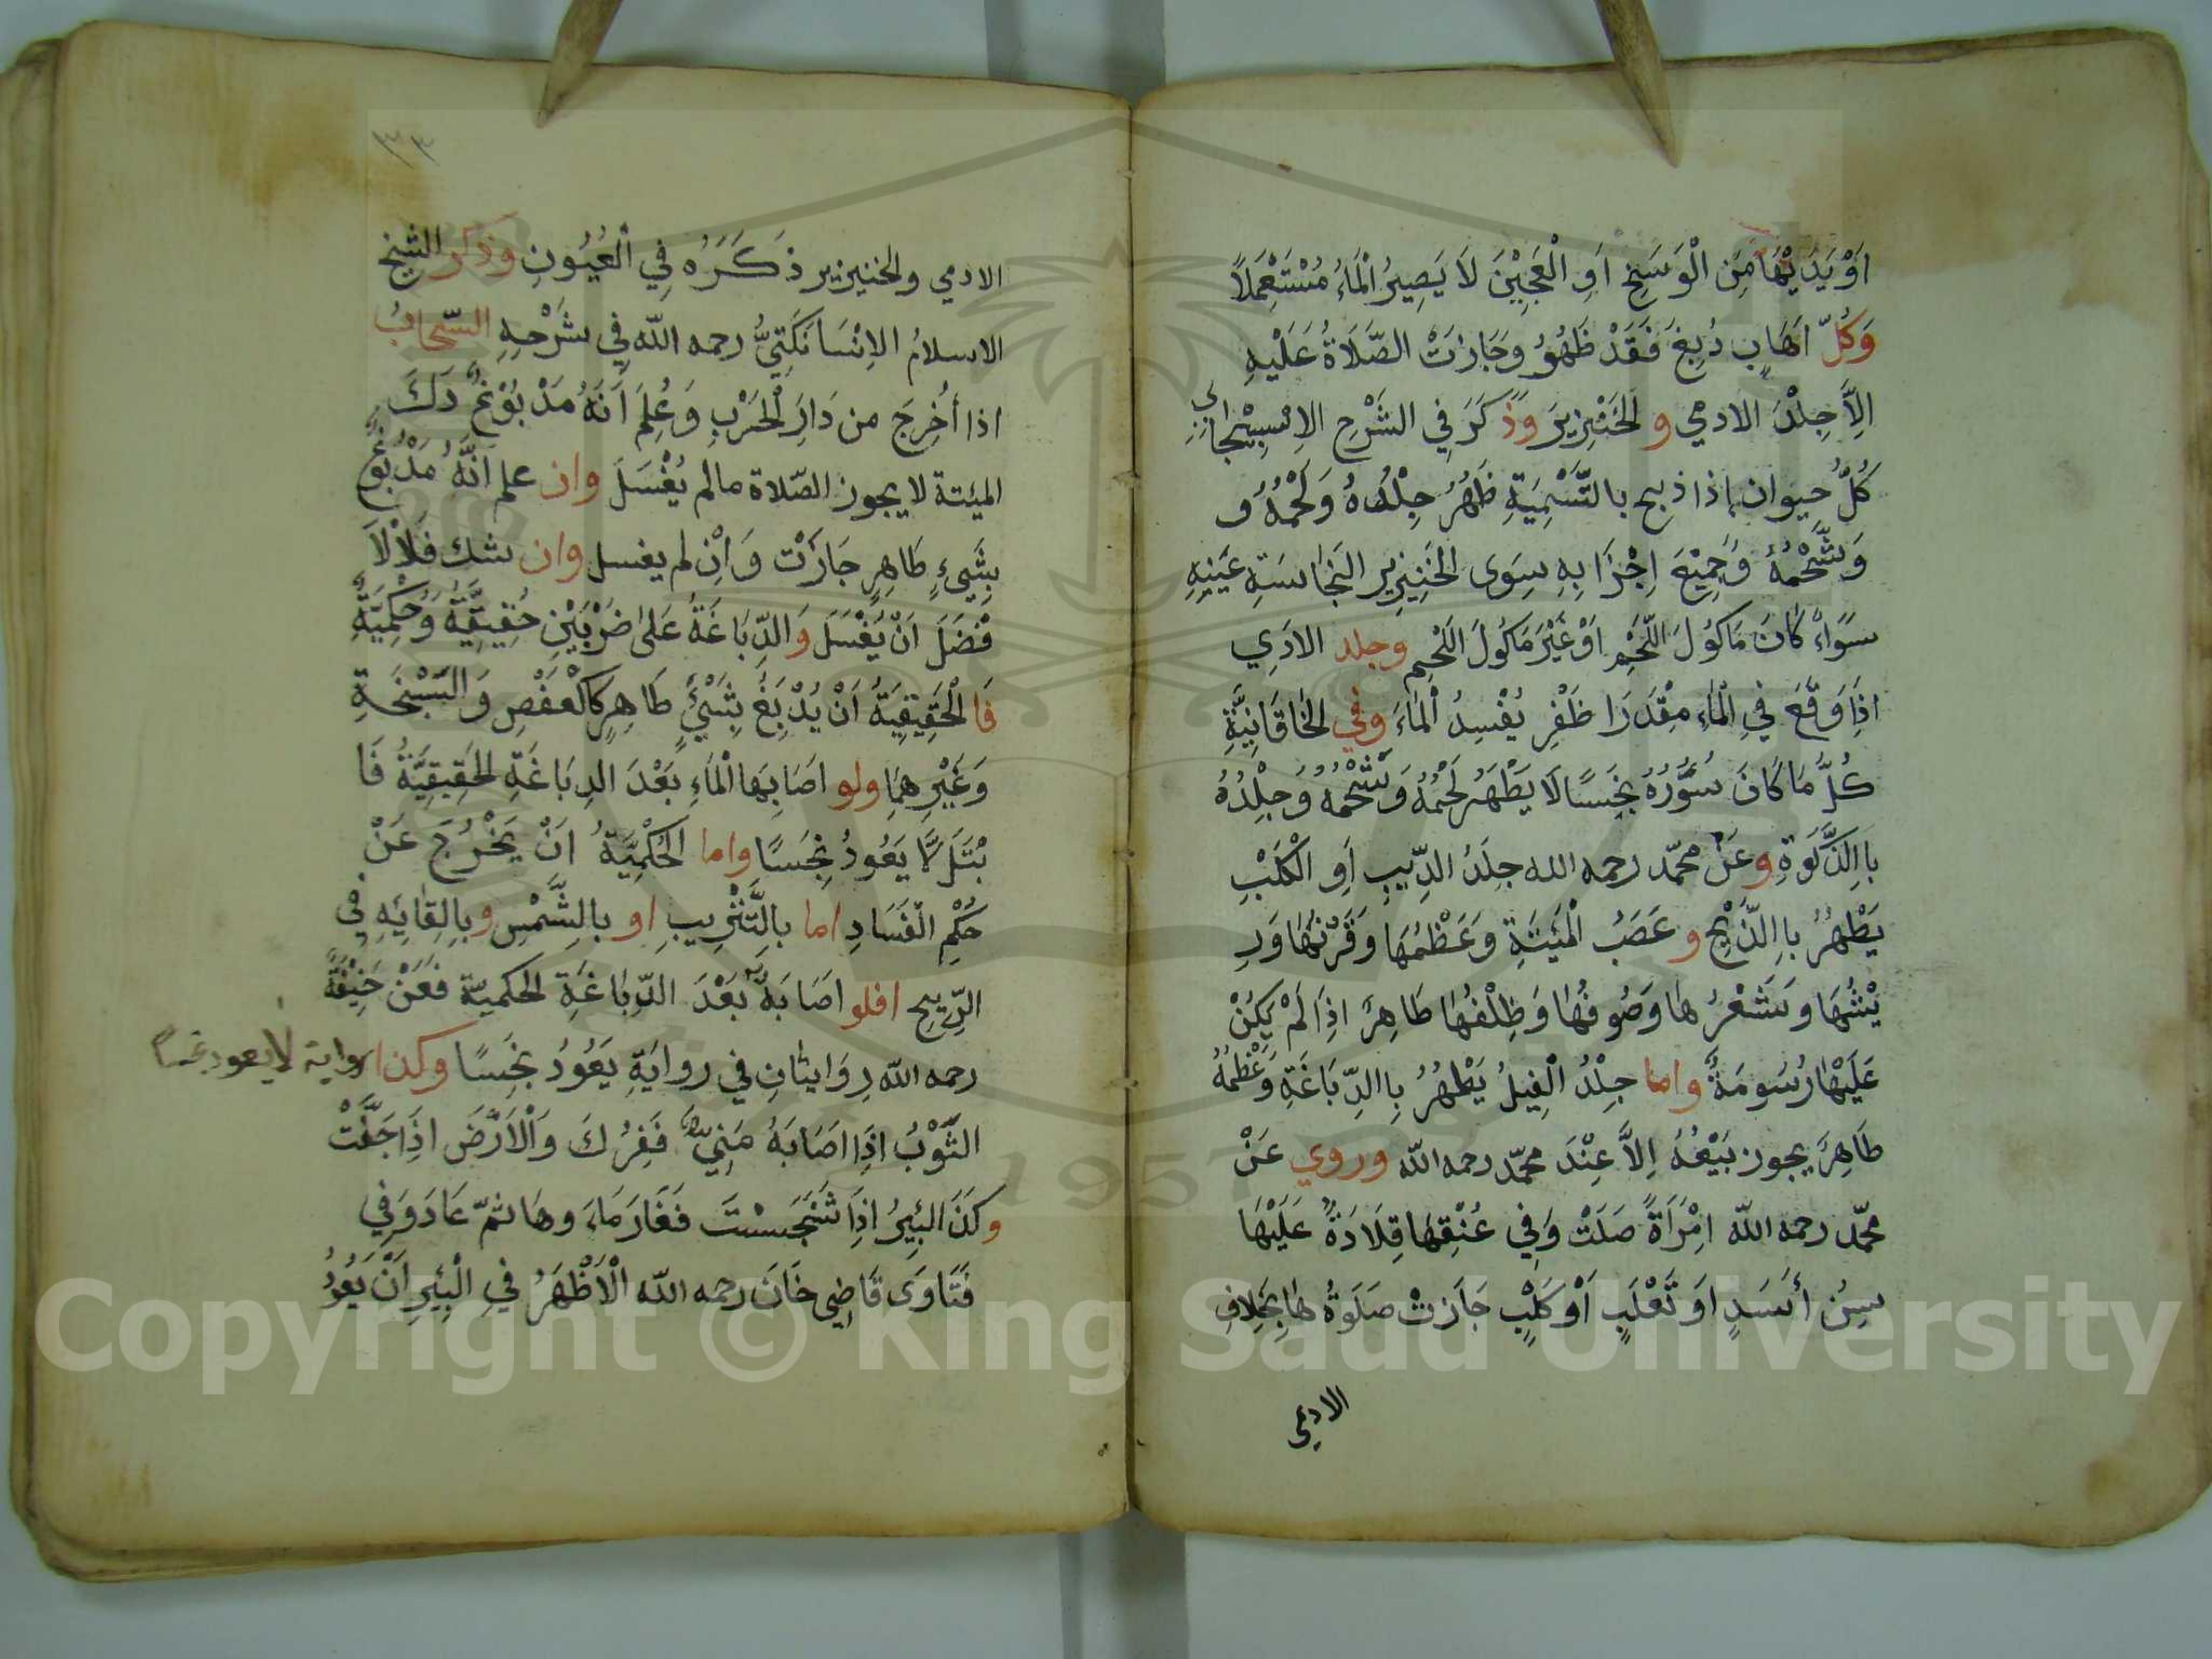 اَوْ يَدَيْهَا مِنَ الْوَسَخِ اَوِ الْعَجِيْنَ لَا يَصِيرُ الْمَاءُ مُسْتَعْمَلاً
وَكُلّ اَهَابٍ دُبِغَ فَقَدْ طَهُرُ وَجَازَتْ الصَّلَاةُ عَلَيْهِ
اِلاَّ جِلْدَ الادمي و الْخَنْزِيرَ وَذَكَرَ فِي الشَّرْحِ الاِسْبِيْجَابِي
كُلُّ حيوان اذا ذبح بالتَّسْمِيَةِ طَهُرُ جِلْدُهُ وَلَحْمُهُ و
وَشَحْمُهُ وَجَمِيْعَ اِجْزَا بِهِ سِوَى الْخَنِزِيرِ النَجَاسَتِهِ عَيْنِهِ
سَوَاءً كَانَ مَاكُولَ اللَّحْمِ اَوْ غَيْرَ مَاكُولَ اللَحْمِ وجلد الادَمِي
اذَا وَقَعَ فِي الْمَاءِ مِقْدَرَا ظَفْرِ يُفْسِدُ الْمَاءَ وَفِي الخَاقَانِيَّةِ
كُلُّ مَا كَانَ سُؤْرُهُ نَجِسًا لَا يَطْهَرُ لَحْمُهُ وَشَحْمُهُ وَجِلْدُهُ
بااِلذَّكَوةِ وعَنْ محمّد رحمه الله جِلَدُ الذِّيبِ اَوِ الْكَلْبِ
يَطْهُرُ بااِلذَّبْحِ و عَصَبُ الْمَيْتَةِ وَعَظْمُهَا وَقَرْنُهَا وَرِ
يْشُهَا وَشَعْرُ هَا وَصُوفُهَا وَظِلْفُهَا طَاهِرَ اذَا لَمْ يَكُنْ
عَلَيْهَا رُسُومَةٌ واما جِلْدُ الْفِيلُ يَطْهُرُ بِاالدِّبَاغَةِ وَعَظْمُهُ
طَاهِرَ يجوز بَيْعُهُ اِلاَّ عِنْدَ محمّد رحمه اللّه وروي عَنْ
محمّد رحمه اللّه اِمْرَاَةً صَلَتْ وَفِي عُنْقِهَا قِلَادَةٌ عَلَيْهَا
سِنُ أَسَدٍ اَوَ ثَعْلَبٍ اَوْ كَلْبٍ جَازَتْ صَلَوتُهَا بِخِلافِ
الادمي
٣٣
الادمي والخنيزير ذَكَرَهُ فِي الْعُيُونِ وذكر الشيخ
الاسلامُ الاِسْبَانَكَتِيُّ رحمه اللّه فِي شَرْحِهِ السّحابُ
اذا أُخرِجَ من دَارَ الْحَرْبِ وَعُلِمَ اَنَهُ مَدْبُوغٌ دَكَ
الميتة لا يجوز الصّلاة مالم يُغْسَلَ وان علم انَّهُ مَدْبُوغٌ
بِشَيءٍ طَاهِرٍ جَازَتْ وَاِنْ لم يغسل وان شك فَلْاَلاَ
فْضَلَ اَنْ يُغْسَلَ وَالدِّبَاغَةُ عَلَى ضَرْبَيْنِ حَقِيقِيَّةٌ وَحُكْمِيَّةٌ
فَا لْحَقِيقِيَةُ اَنْ يُدْبَغَ بِشَيْءٍ طَاهِرٍ كَالْعَفْصِ وَالسَبْخَةِ
وَغَيْرِ هِمَا ولو اصَابَهَا الْمَاءِ بَعْدَ الدِبَاغَةِ الحَقِيقِيَّةُ فَا
بْتَلَ لاَ يَعُودُ نَجِسَسًا واما الْحُكْمِيَةُ اَنْ يَخْرُجَ عَنْ
حُكْمِ الْفَسَادِ اما بِالتَّتْرِيبِ او بِالشَّمْسِ وبِالِقَايَهِ فِي
الرِّيحِ افلو اَصَابَهُ بَعْدَ الدِّبَاغَةِ الحكميّة فَعَنْ حَنِيْفَةً
رحمه اللّه رِوَايتَانِ فِي روايَةِ يَعُودُ نَجِسًا وكذا رواية لا يعود نجسا
الثَّوْبُ اذَا اصَابَهُ مَنِيٌّ فَفِرُكَ وَالْاَرْضَ اذَا جَفَّتْ
وكَذَ البِئِرُ اذَا تَنَجَسَتَ فَغَارَ مَاءَ وهَا ثمّ عَادَ وَفِي
فَتَاوَى قَاضِى خَانَ رحمه اللّه الْاَظْهَرُ فِي الْبِئِرِ اَنْ يَعُودُ
Copyright © King Saud University
1957